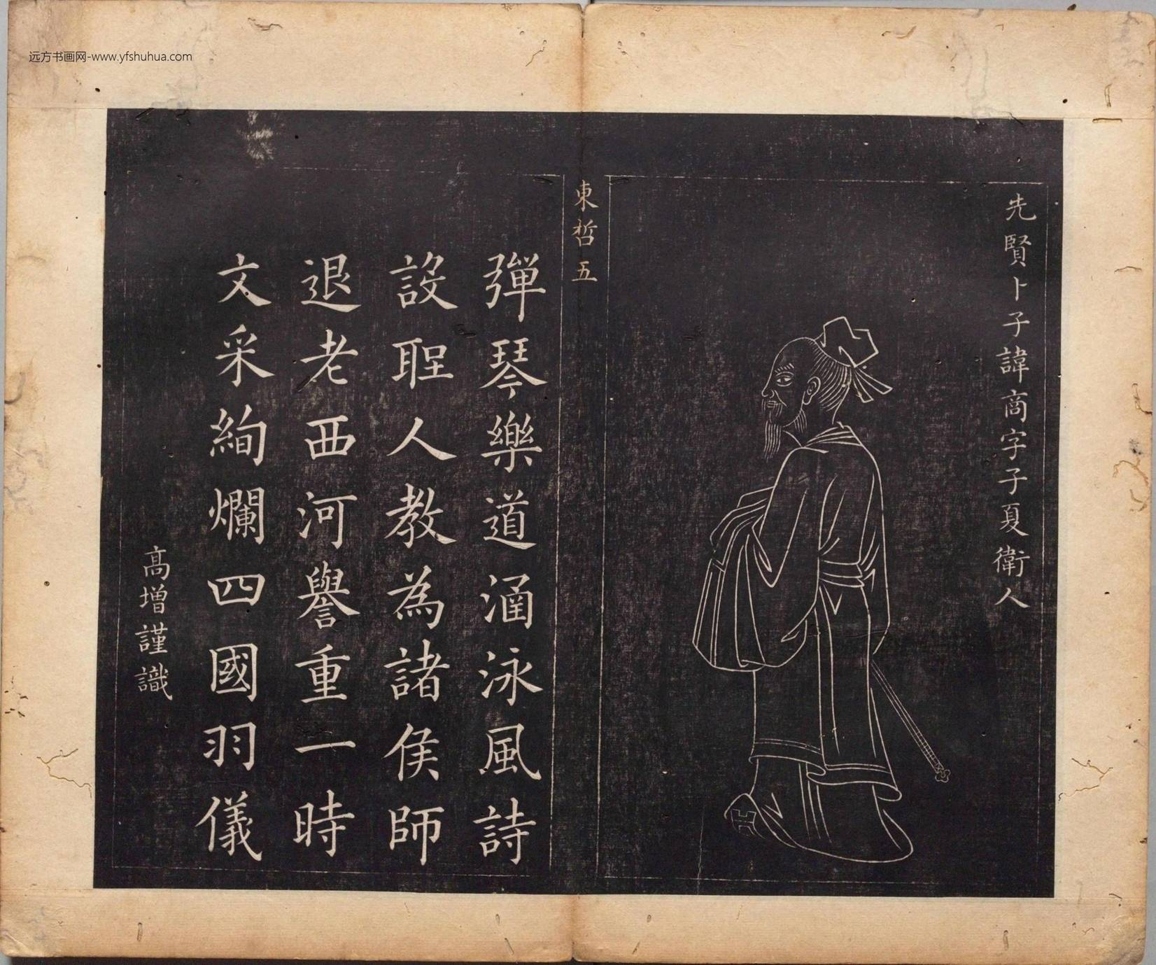 远方书画网-www.yfshuhua.com
先賢卜子諱商字子夏衛人
東哲五
彈琴樂道涵泳風詩
設聖人教為諸侯師
退老西河譽重一時
文采絢爛四國羽儀
高增謹識